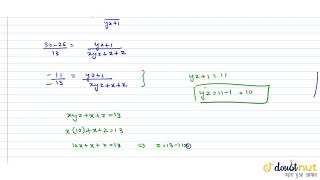 yz+1
30-26/13 = yz+1/xyz+x+z
-11/13 = yz+1/xyz+x+z }
yz+1 = 11
yz = 11-1 = 10
xyz+x+z = 13
x(10)+x+z = 13
10x+x+z = 13 ⇒ z = 13-11x
doubtnut
पढ़ना हुआ आसान